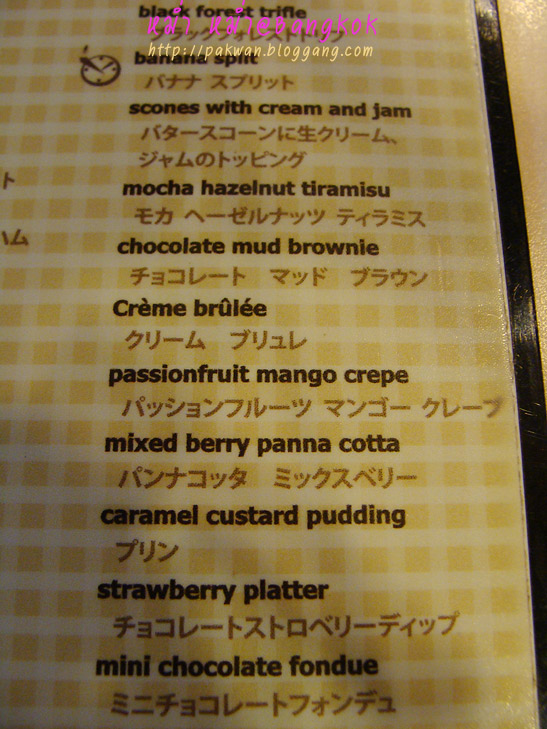 black forest trifle
ブラックフォレストトリフ
หม่ำ หม่ำ@bangkok
http://pakwan.bloggang.com
banana split
バナナ スプリット
scones with cream and jam
バタースコーンに生クリーム、
ジャムのトッピング
ト
mocha hazelnut tiramisu
モカ ヘーゼルナッツ ティラミス
ハム
chocolate mud brownie
チョコレート マッド ブラウン
Crème brûlée
クリーム ブリュレ
passionfruit mango crepe
パッションフルーツ マンゴー クレープ
mixed berry panna cotta
パンナコッタ ミックスベリー
caramel custard pudding
プリン
strawberry platter
チョコレートストロベリーディップ
mini chocolate fondue
ミニチョコレートフォンデュ